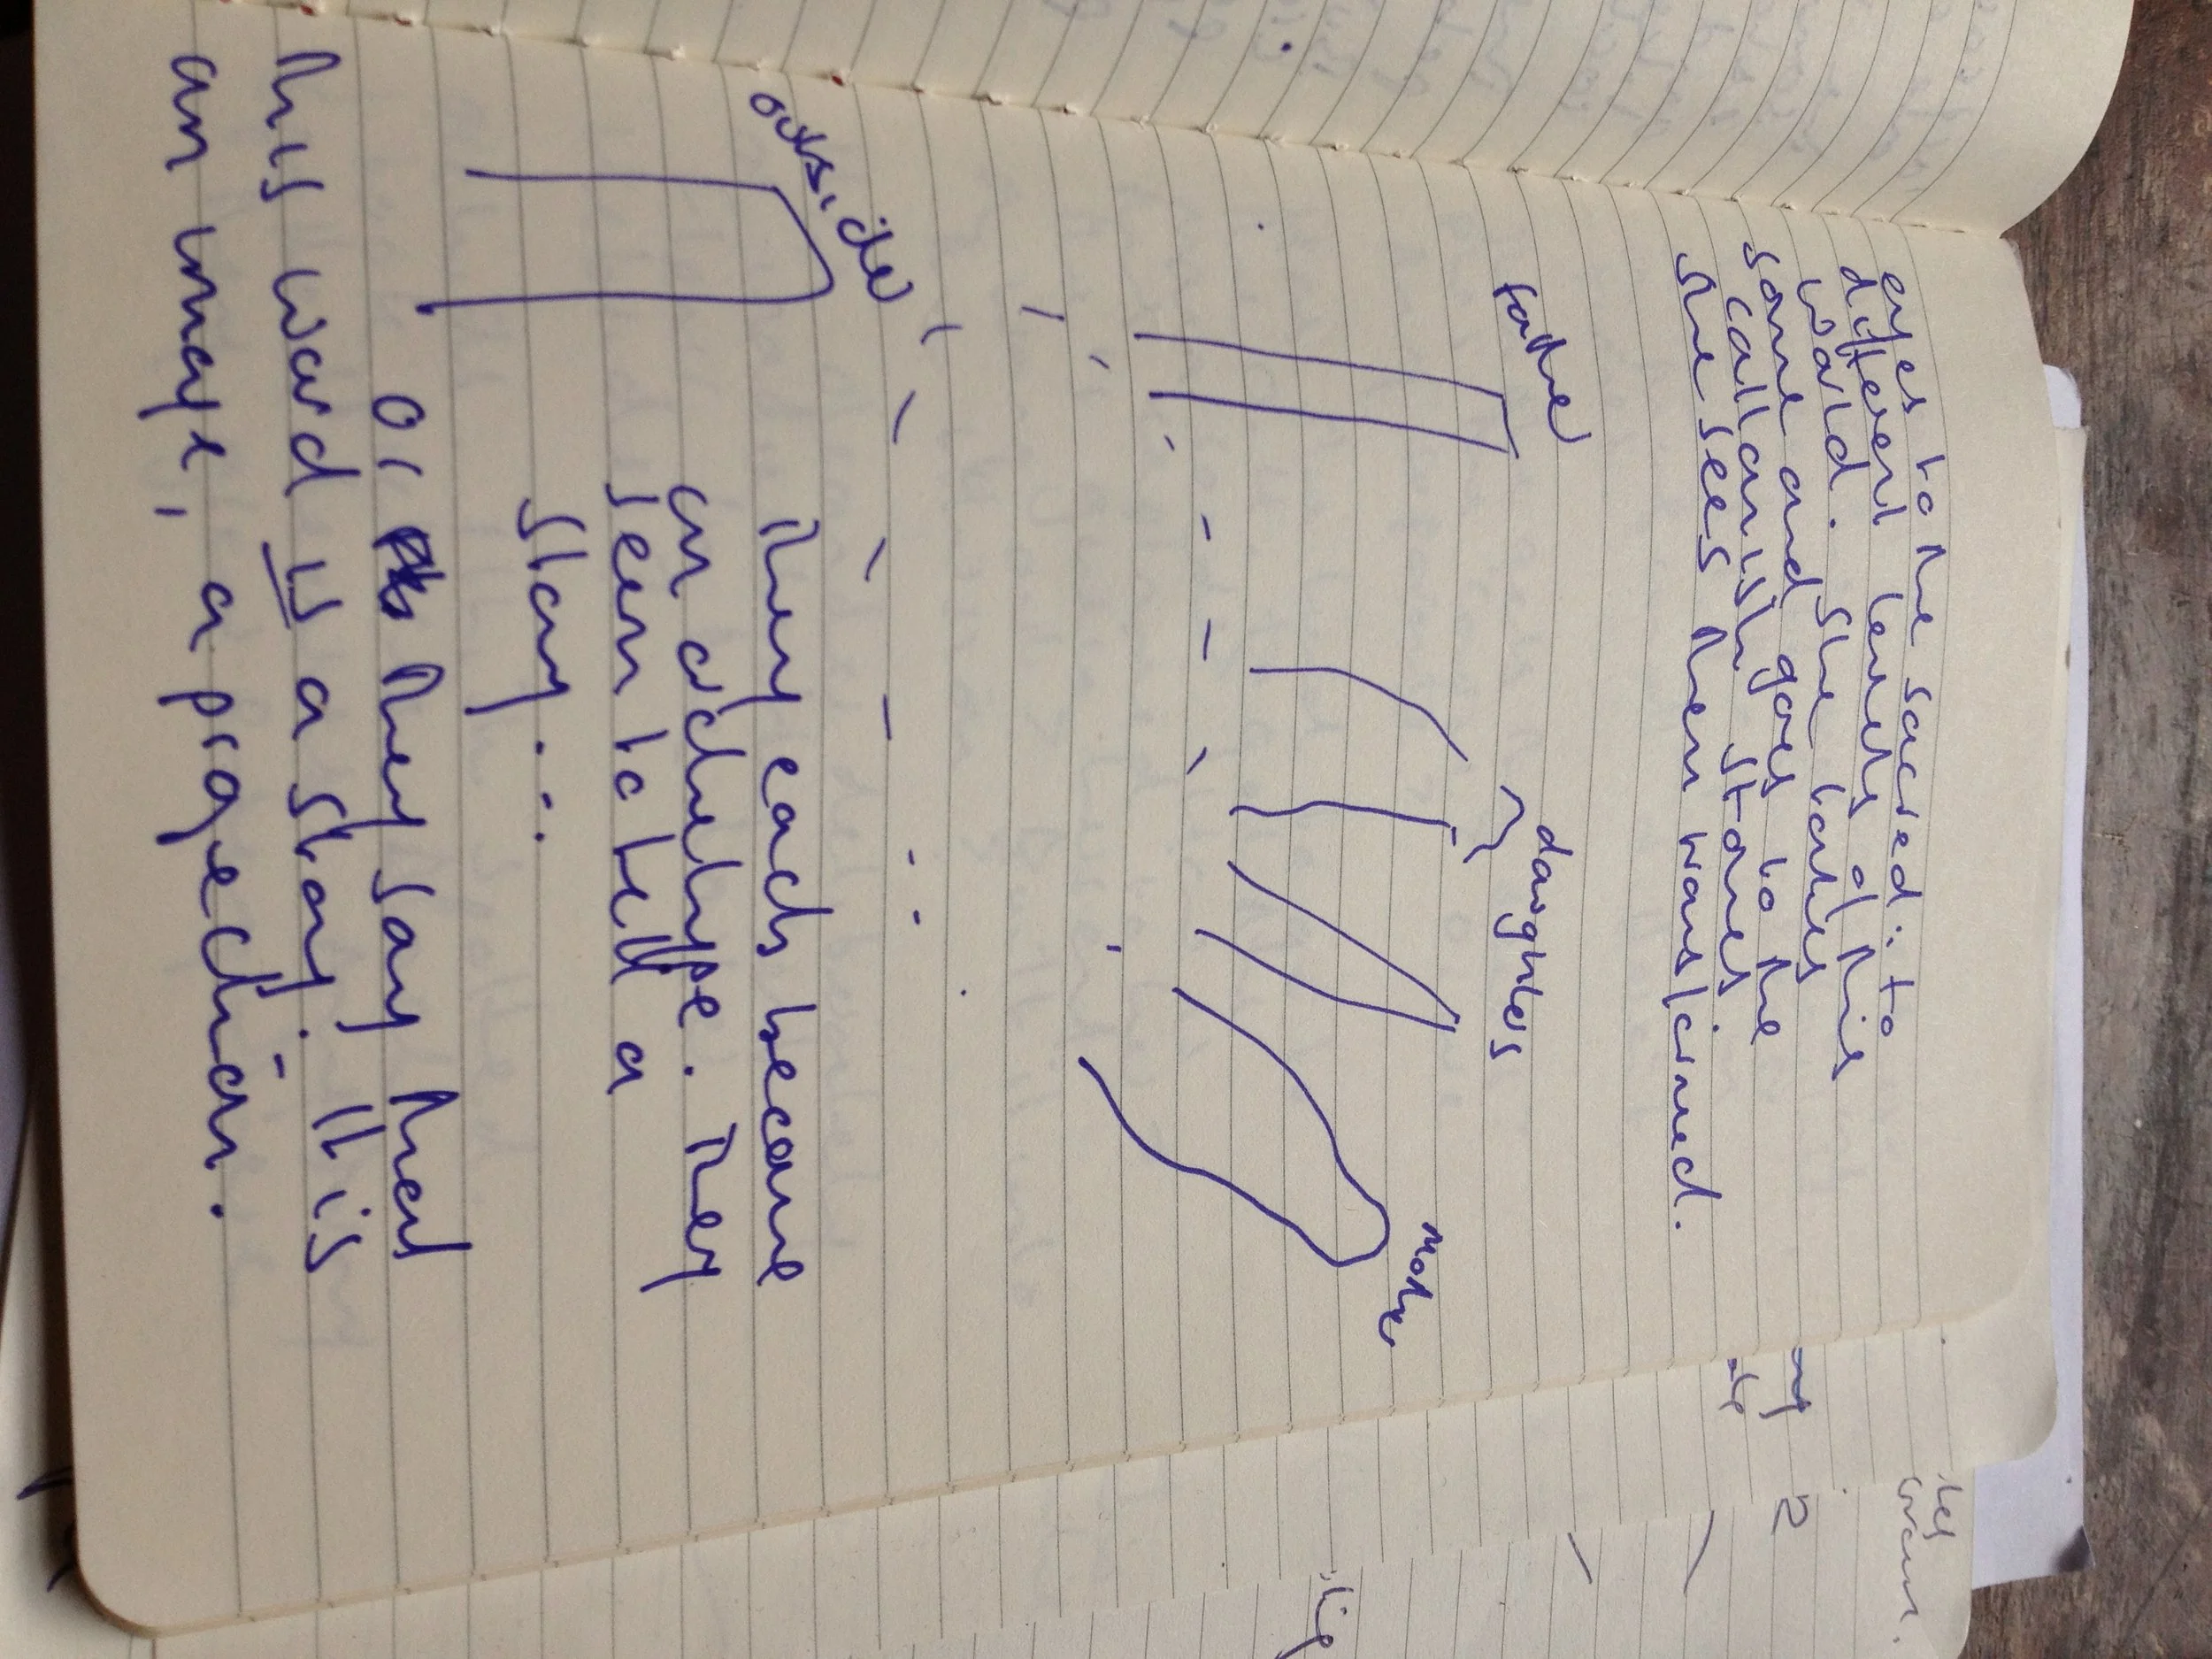 eyes to the sacred: to
different levels of this
world. She touches
some and goes to the
callanish stones
she sees them transformed.
father
daughters
mother
outsider
They each become
an archetype. They
seem to tell a
story...
or they say that
this world is a story. It is
an image, a projection.